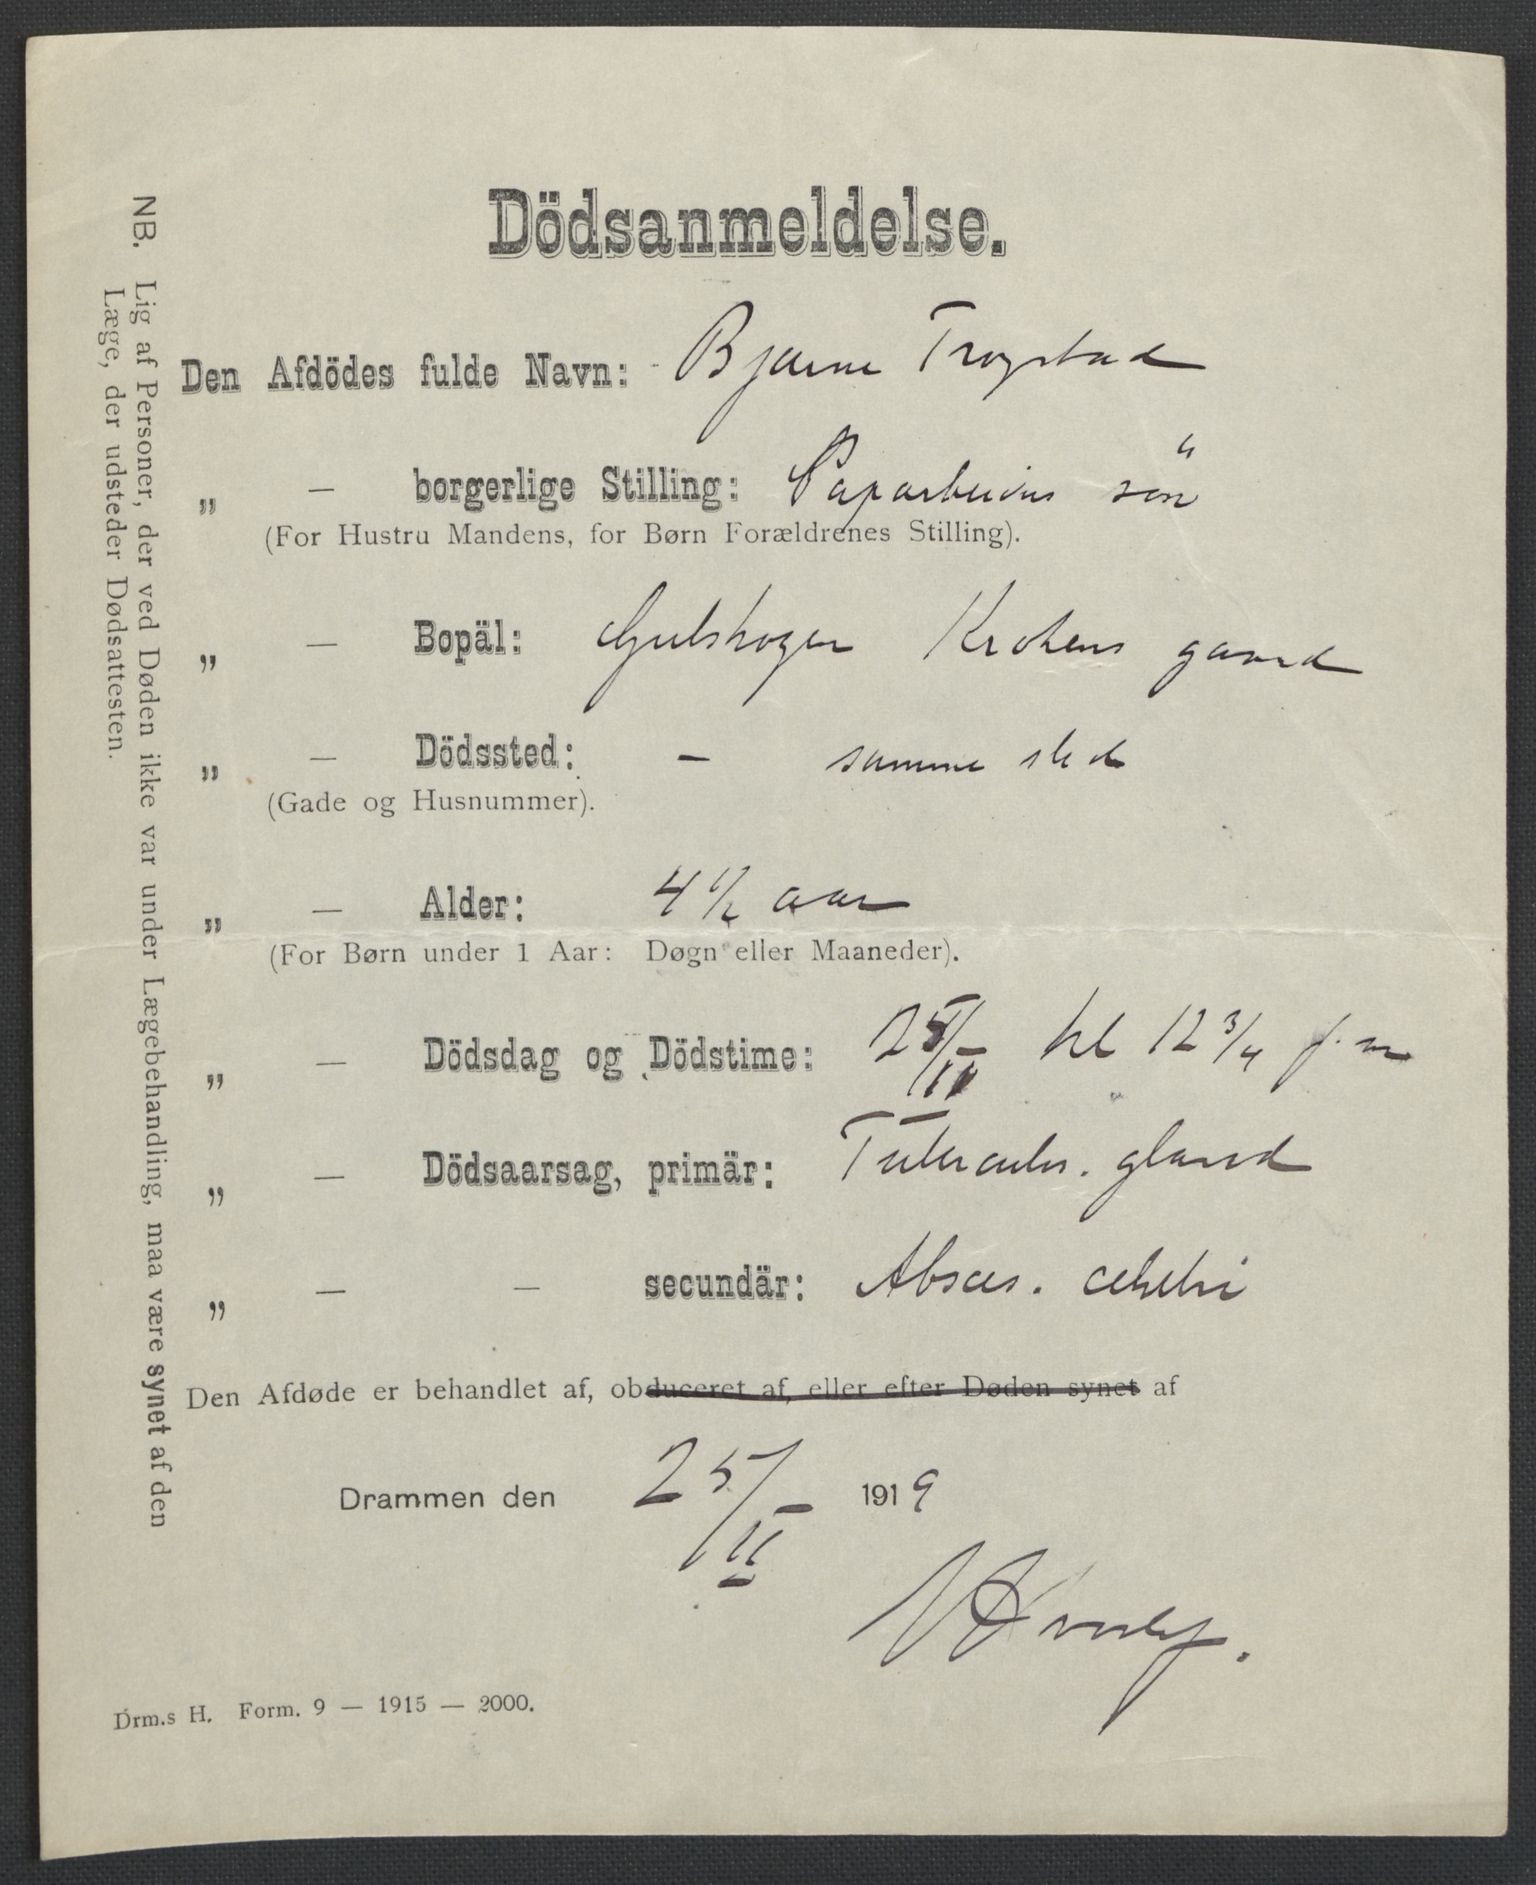 Dödsanmeldelse.
Den Afdödes fulde Navn: Bjarne Trogstad
„ — borgerlige Stilling: Paparbeiders sön
(For Hustru Mandens, for Børn Forældrenes Stilling).
„ — Bopäl: Gulskogen Krokens gaard
„ — Dödssted: — samme sted
(Gade og Husnummer).
„ — Alder: 4 1/2 aar
(For Børn under 1 Aar: Døgn eller Maaneder).
„ — Dödsdag og Dödstime: 25/II kl 12 3/4 f.m
„ — Dödsaarsag, primär: Tuberculos. gland
„ — — secundär: Absces. cerebri
Den Afdøde er behandlet af, obduceret af, eller efter Døden synet af
Drammen den 25/II 1919
Drm.s H. Form. 9 — 1915 — 2000.
NB. Lig af Personer, der ved Døden ikke var under Lægebehandling, maa være synet af den
Læge, der udsteder Dødsattesten.